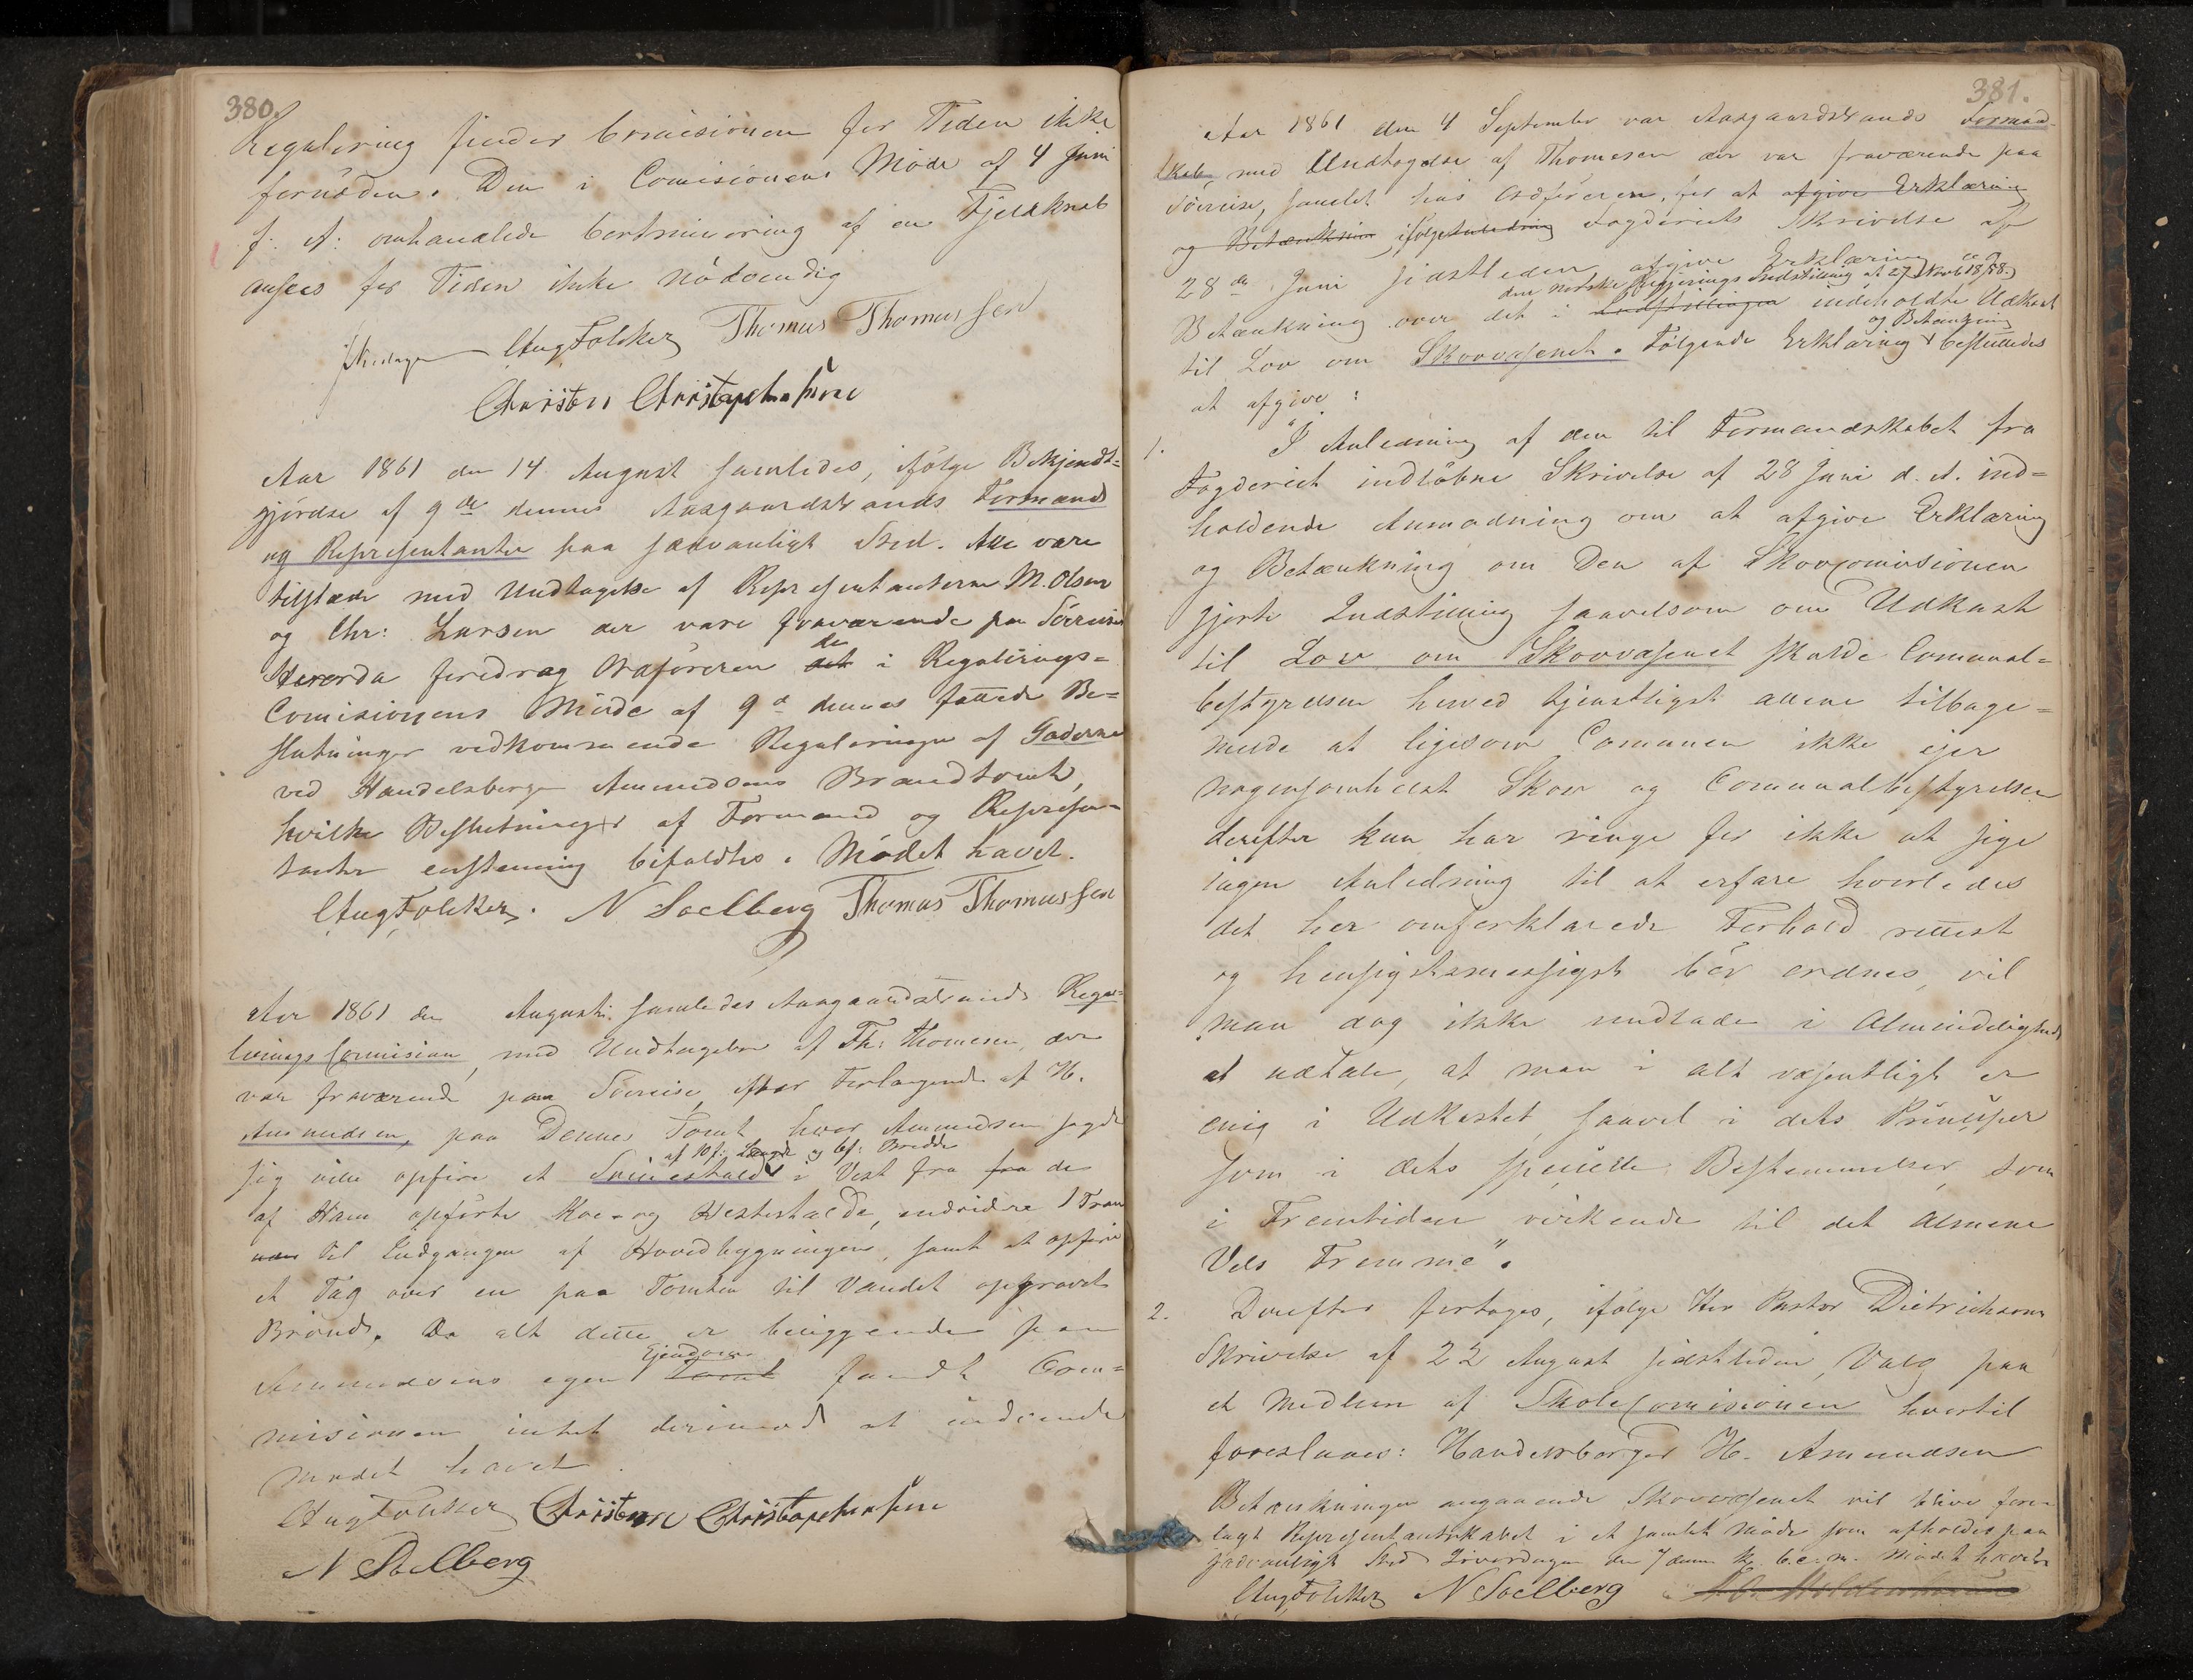 380.
Regulering finder Comisionen for Tiden ikke
fornöden. Den i Comisionens Möde af 4 Juni
f: A: omhandlede bortminering af en Fjeldknab
ansees for Tiden ikke nödvendig
AugFoleker Thomas Thomassen
Christen Christophersen
Aar 1861 den 14 August samledes, ifölge Bekjendt=
gjörelse af 9de dennes Aasgaardstrands Formænd
og Representanter paa sædvanligt Sted. Alle vare
tilstæde med Undtagelse af Representanterne M. Olsen
og Chr: Larsen der vare fraværende paa Söereise
de
Hvorda foredrag Ordföreren det i Regulerings=
Comisionens Möde af 9d dennes fattede Be=
slutninger vedkommende Reguleringen af Gaderne
ved Handelsborger Amundsens Brandtomt,
hvilke Beslutninger af Formænd og Represen=
tanter enstemmig bifaldtes. Mödet hævet.
AugFoleker. N Soelberg Thomas Thomassen
Aar 1861 den August samledes Aasgaardstrands Regu=
lerings Commision, med Undtagelse af Th: Thomesen, der
var fraværende paa Söereise, efter Forlangende af H.
Amundsen, paa Dennes Tomt hvor Amundsen sagde
af 10 f: Længde og 6 f: Bredde
sig ville opföre et Svinestald i Vest fra fra de
af Ham opförte Koe- og Hestestalde, endvidere 1 Tram
til Indgangen af Hovedbygningen, samt at opföre
et Tag over en paa Tomten til Vandet opgravet
Brönd. Da alt dette er beliggende paa
Ejendom
Amundsens egen Tomt fandt Com=
misionen intet derimod at indvende
Mödet hævet.
AugFoleker Christen Christophersen
N Soelberg
381.
Aar 1861 den 4 September var Aasgaardstrands Formand-
skab, med Undtagelse af Thomesen der var fraværende paa
Söereise, samlet hos Ordföreren, for at afgive Erklæring
og Betænkning ifölge Anledning Fogderiets Skrivelse af
28de Juni sidstleden afgive Erklæring og
den norske Regjerings Indstilling af 27 Novb 1858.
Betænkning over det i Indstillingen indeholdte Udkast
og Betænkning
til Lov om Skovvæsenet. Fölgende Erklæring besluttedes
at afgive:
1. "I Anledning af den til Formandskabet fra
Fogderiet indlöbne Skrivelse af 28 Juni d. A. ind=
holdende Anmodning om at afgive Erklæring
og Betænkning om Den af Skovcomisionen
gjorte Indstilling saavelsom om Udkast
til Lov om Skovvæsenet skulde Comunal=
bestyrelsen herved tjenstligst allene tilbage=
melde at ligesom Comunen ikke ejer
nogensomhelst Skov og Comunalbestyrelsen
derefter kun har ringe for ikke at sige
ingen Anledning til at erfare hvorledes
det her omforklarede Forhold rettest
og hensigtsmessigst bör ordnes, vil
man dog ikke undlade i Almindelighed
at udtale, at man i alt væsentligt er
enig i Udkastet, saavel i dets Principer
som i dets specielle Bestemmelser, som
i Fremtiden virkende til det Almene
Vels Fremme".
2. Derefter fortoges, ifölge Her Pastor Dietrichsons
Skrivelse af 22 August sidstleden, Valg paa
et Medlem af SkoleComisionen hvortil
foreslaaes: Handelsborger H. Amundsen
Betænkningen angaaende Skovvæsenet vil blive fore-
lagt Representantskabet i et samlet Möde som afholdes paa
sædvanligt Sted Löverdagen den 7 denne Kl 6 e. m. Mödet hævet
AugFoleker N Soelberg